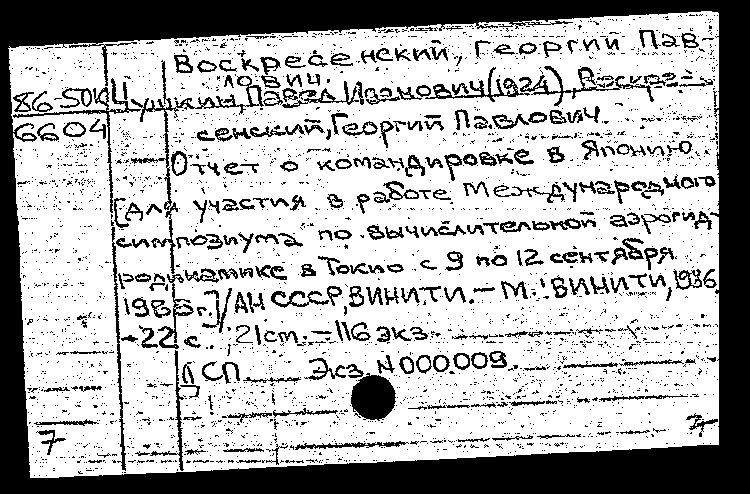 Воскресенский, Георгий Пав-
лович.
86-5ОК Чушкин, Павел Иванович (1924), Воскре-
6604 сенский, Георгий Павлович.
Отчет о командировке в Японию
[для участия в работе Международного
симпозиума по вычислительной аэрогид-
родинамике в Токио с 9 по 12 сентября
1985г.]/АН СССР, ВИНИТИ. – М.: ВИНИТИ, 1986.
-22 с.; 21 cm. – 116 экз.
ДСП. Экз. N 000009.
7